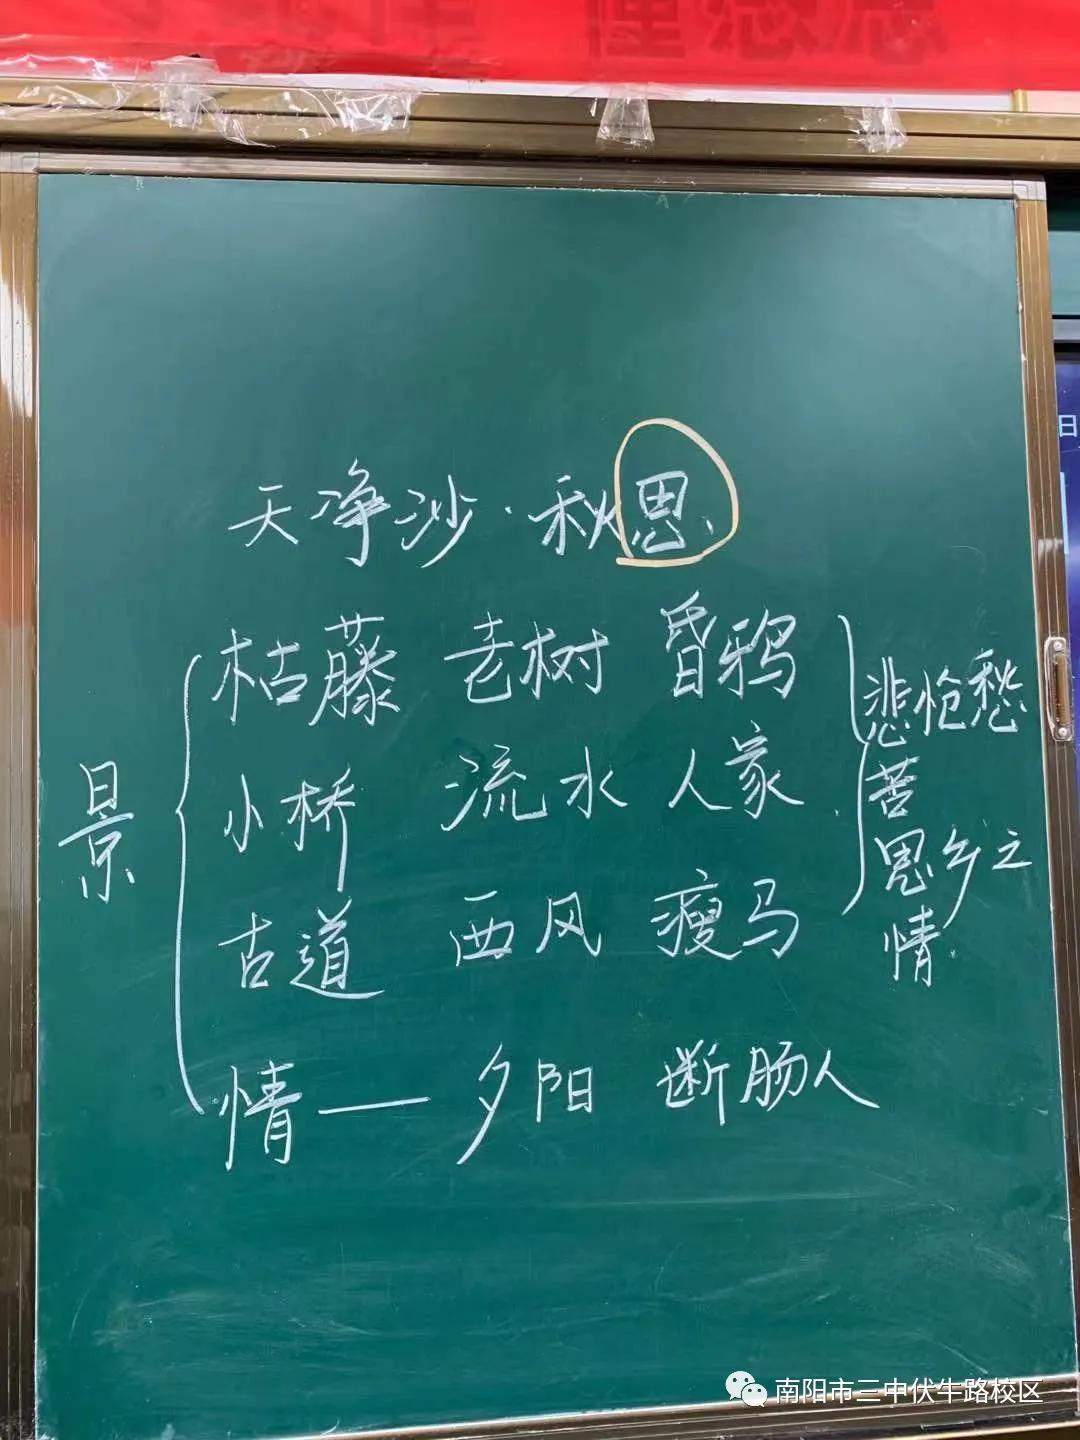 天净沙·秋思
枯藤 老树 昏鸦
小桥 流水 人家
古道 西风 瘦马
情——夕阳 断肠人
景
悲怆愁
苦
思乡之
情
日
南阳市三中伏牛路校区